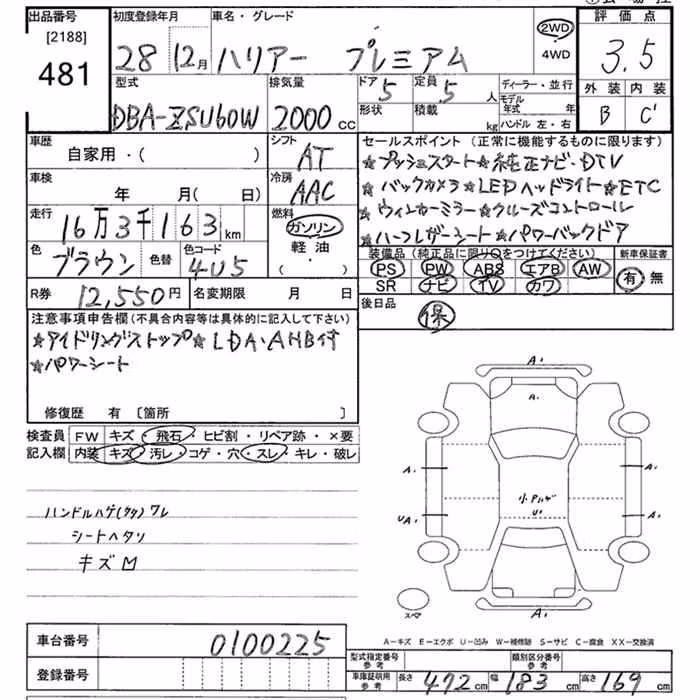 出品番号 初度登録年月 車名・グレード 評価点
[2188] 2WD
481 28 12月 ハリアー プレミアム 4WD 3.5
型式 排気量 ドア 定員 ディーラー・並行 外装 内装
5 5人 モデル年式 年
DBA-ZSU60W 2000cc 形状 積載 kg ハンドル 左・右 B C'
車歴 シフト セールスポイント (正常に機能するものに限ります)
自家用・( ) AT ☆プッシュスタート☆純正ナビ・DTV
車検 冷房 ☆バックカメラ☆LEDヘッドライト☆ETC
年 月(日) AAC ☆ウィンカーミラー☆クルーズコントロール
走行 燃料 ☆ハーフレザーシート☆パワーバックドア
16万3千163km ガソリン
色 色替 色コード 軽油 装備品 (純正品に限り○をつけてください) 新車保証書
ブラウン 4U5 ・( ) PS PW ABS エアB AW 有 無
SR ナビ TV カワ
R券 12,550円 名変期限 月 日 後日品
保
注意事項申告欄(不具合内容等は具体的に記入して下さい)
☆アイドリングストップ☆LDA・AHB付
☆パワーシート
修復歴 有 〔箇所 〕
検査員 FW キズ・飛石・ヒビ割・リペア跡・×要
記入欄 内装 キズ・汚レ・コゲ・穴・スレ・キレ・破レ
A.
A.
A. A.
小.アルゲ
UA. U' A.
ハンドルハゲ(タタ)ワレ
シートヘタリ
キズM
スペア
A.
A-キズ E-エクボ U-凹み W-補修跡 S-サビ C-腐食 XX-交換済
車台番号 0100225
型式指定番号 参考 類別区分番号 参考
登録番号
車庫証明用 参考 長さ 472cm 幅 183cm 高さ 169cm